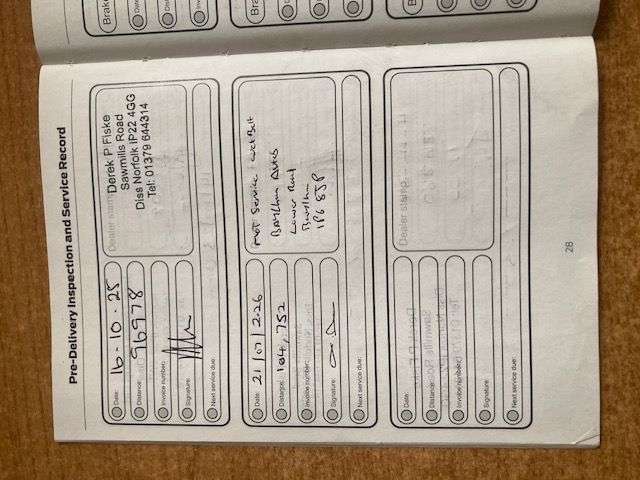 Pre-Delivery Inspection and Service Record
Date: 16-10-25
Distance: 96978
Invoice number:
Signature:
Next service due:
Derek P Fiske
Sawmills Road
Diss Norfolk IP22 4GG
Tel: 01379 644314
Date: 21/07/2026
Distance: 104,752
Invoice number:
Signature:
Next service due:
MOT Service
Lower Road
IP6 8JP
Date:
Distance:
Invoice number:
Signature:
Next service due:
Dealer stamp
28